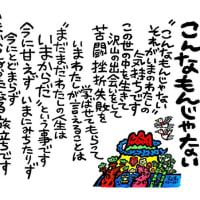 こんなもんじゃない
“こんなもんじゃない”
それがいまのわたしの
気持ちです
この世の中を生きて
沢山の出会いをして
苦闘 挫折 失敗を
学ばせてもらって
いまわたしが言えることは
“まだまだわたしの人生は
いまからだ”という事です
今に甘えず いまにみておりです
今にとどまらず
なる旅立ちです